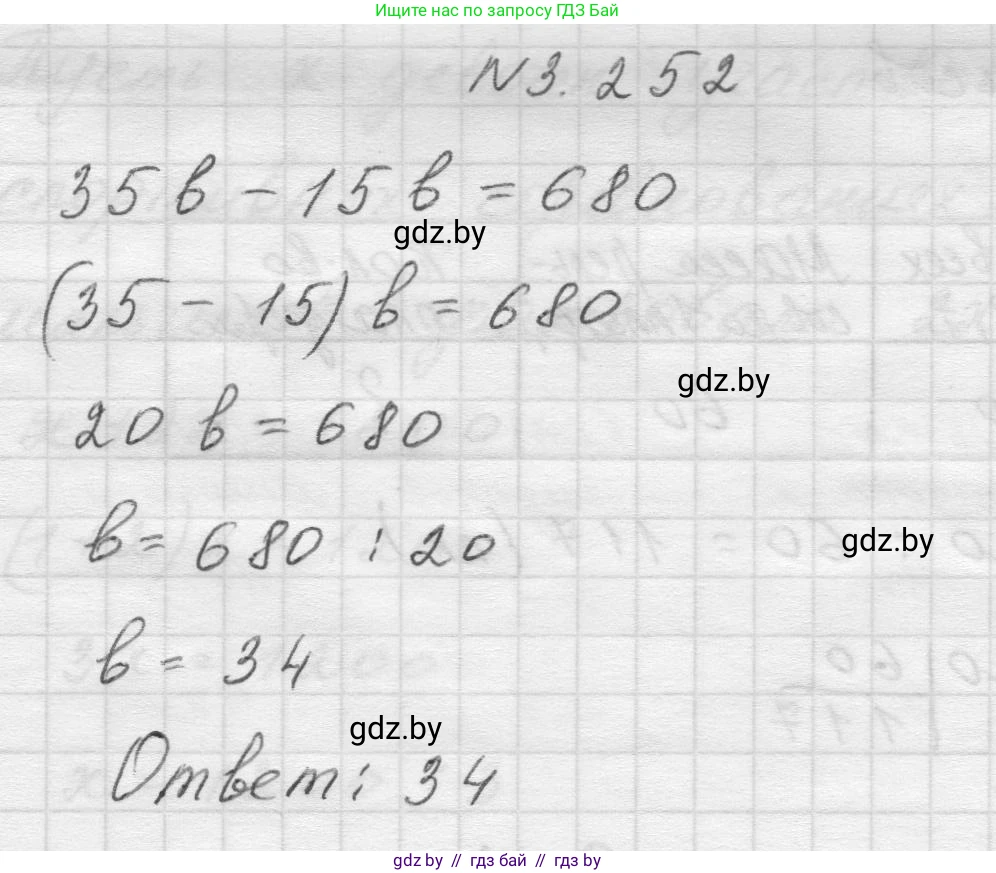 Ищите нас по запросу ГДЗ Бай
N 3. 252
35 в - 15 в = 680
gdz.by
(35 - 15) в = 680
gdz.by
20 в = 680
в = 680 : 20
gdz.by
в = 34
gdz.by
Ответ: 34
gdz by // гдз бай // гдз by